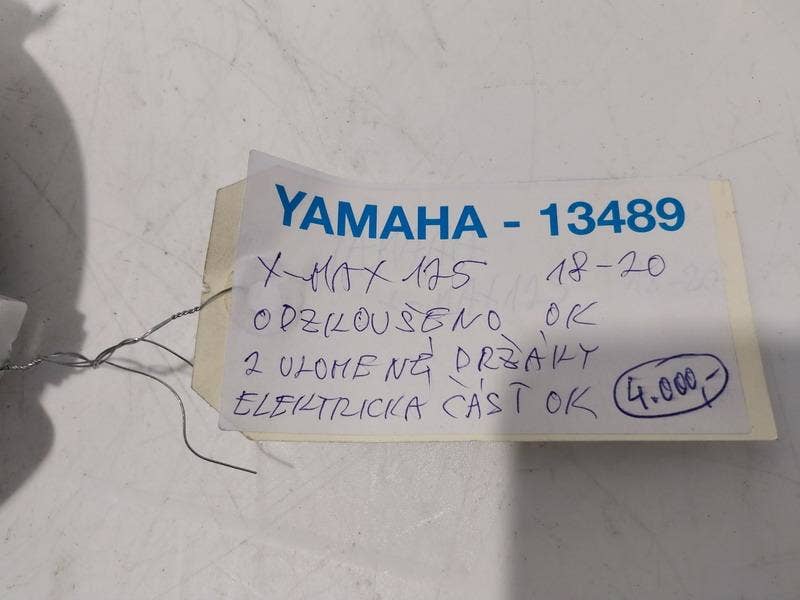 YAMAHA - 13489
X-MAX 125 18-20
ODZKOUŠENO OK
2 ULOMENÉ DRŽÁKY
ELEKTRICKÁ ČÁST OK 4.000,-